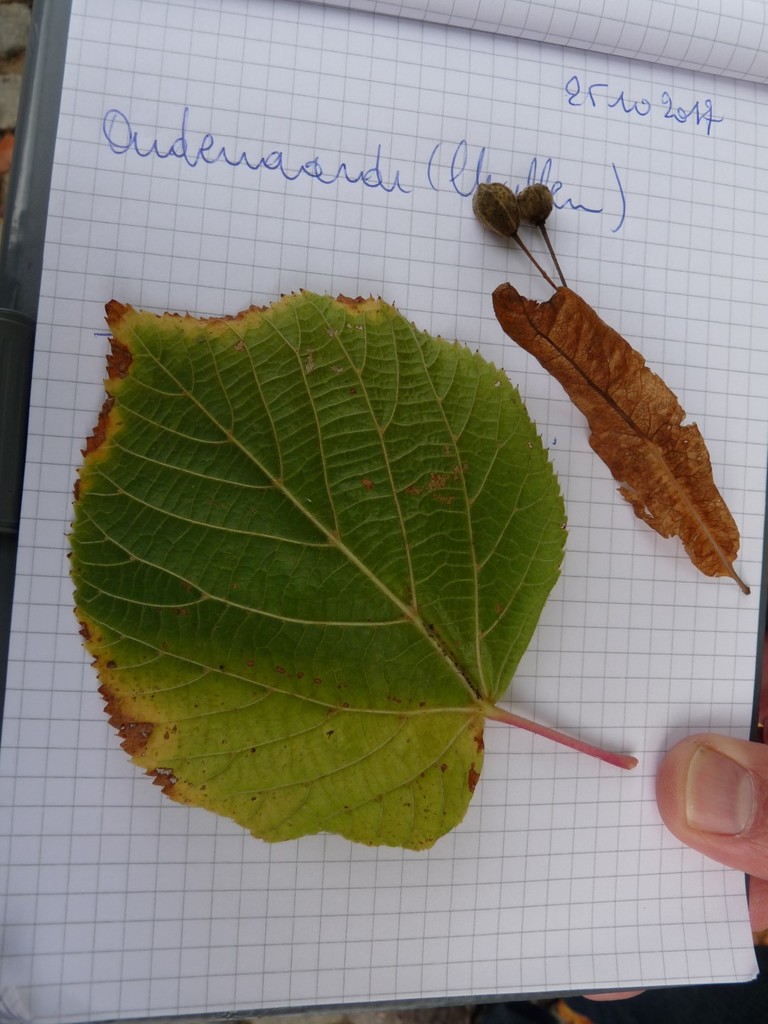 25 10 2017
Oudenaarde